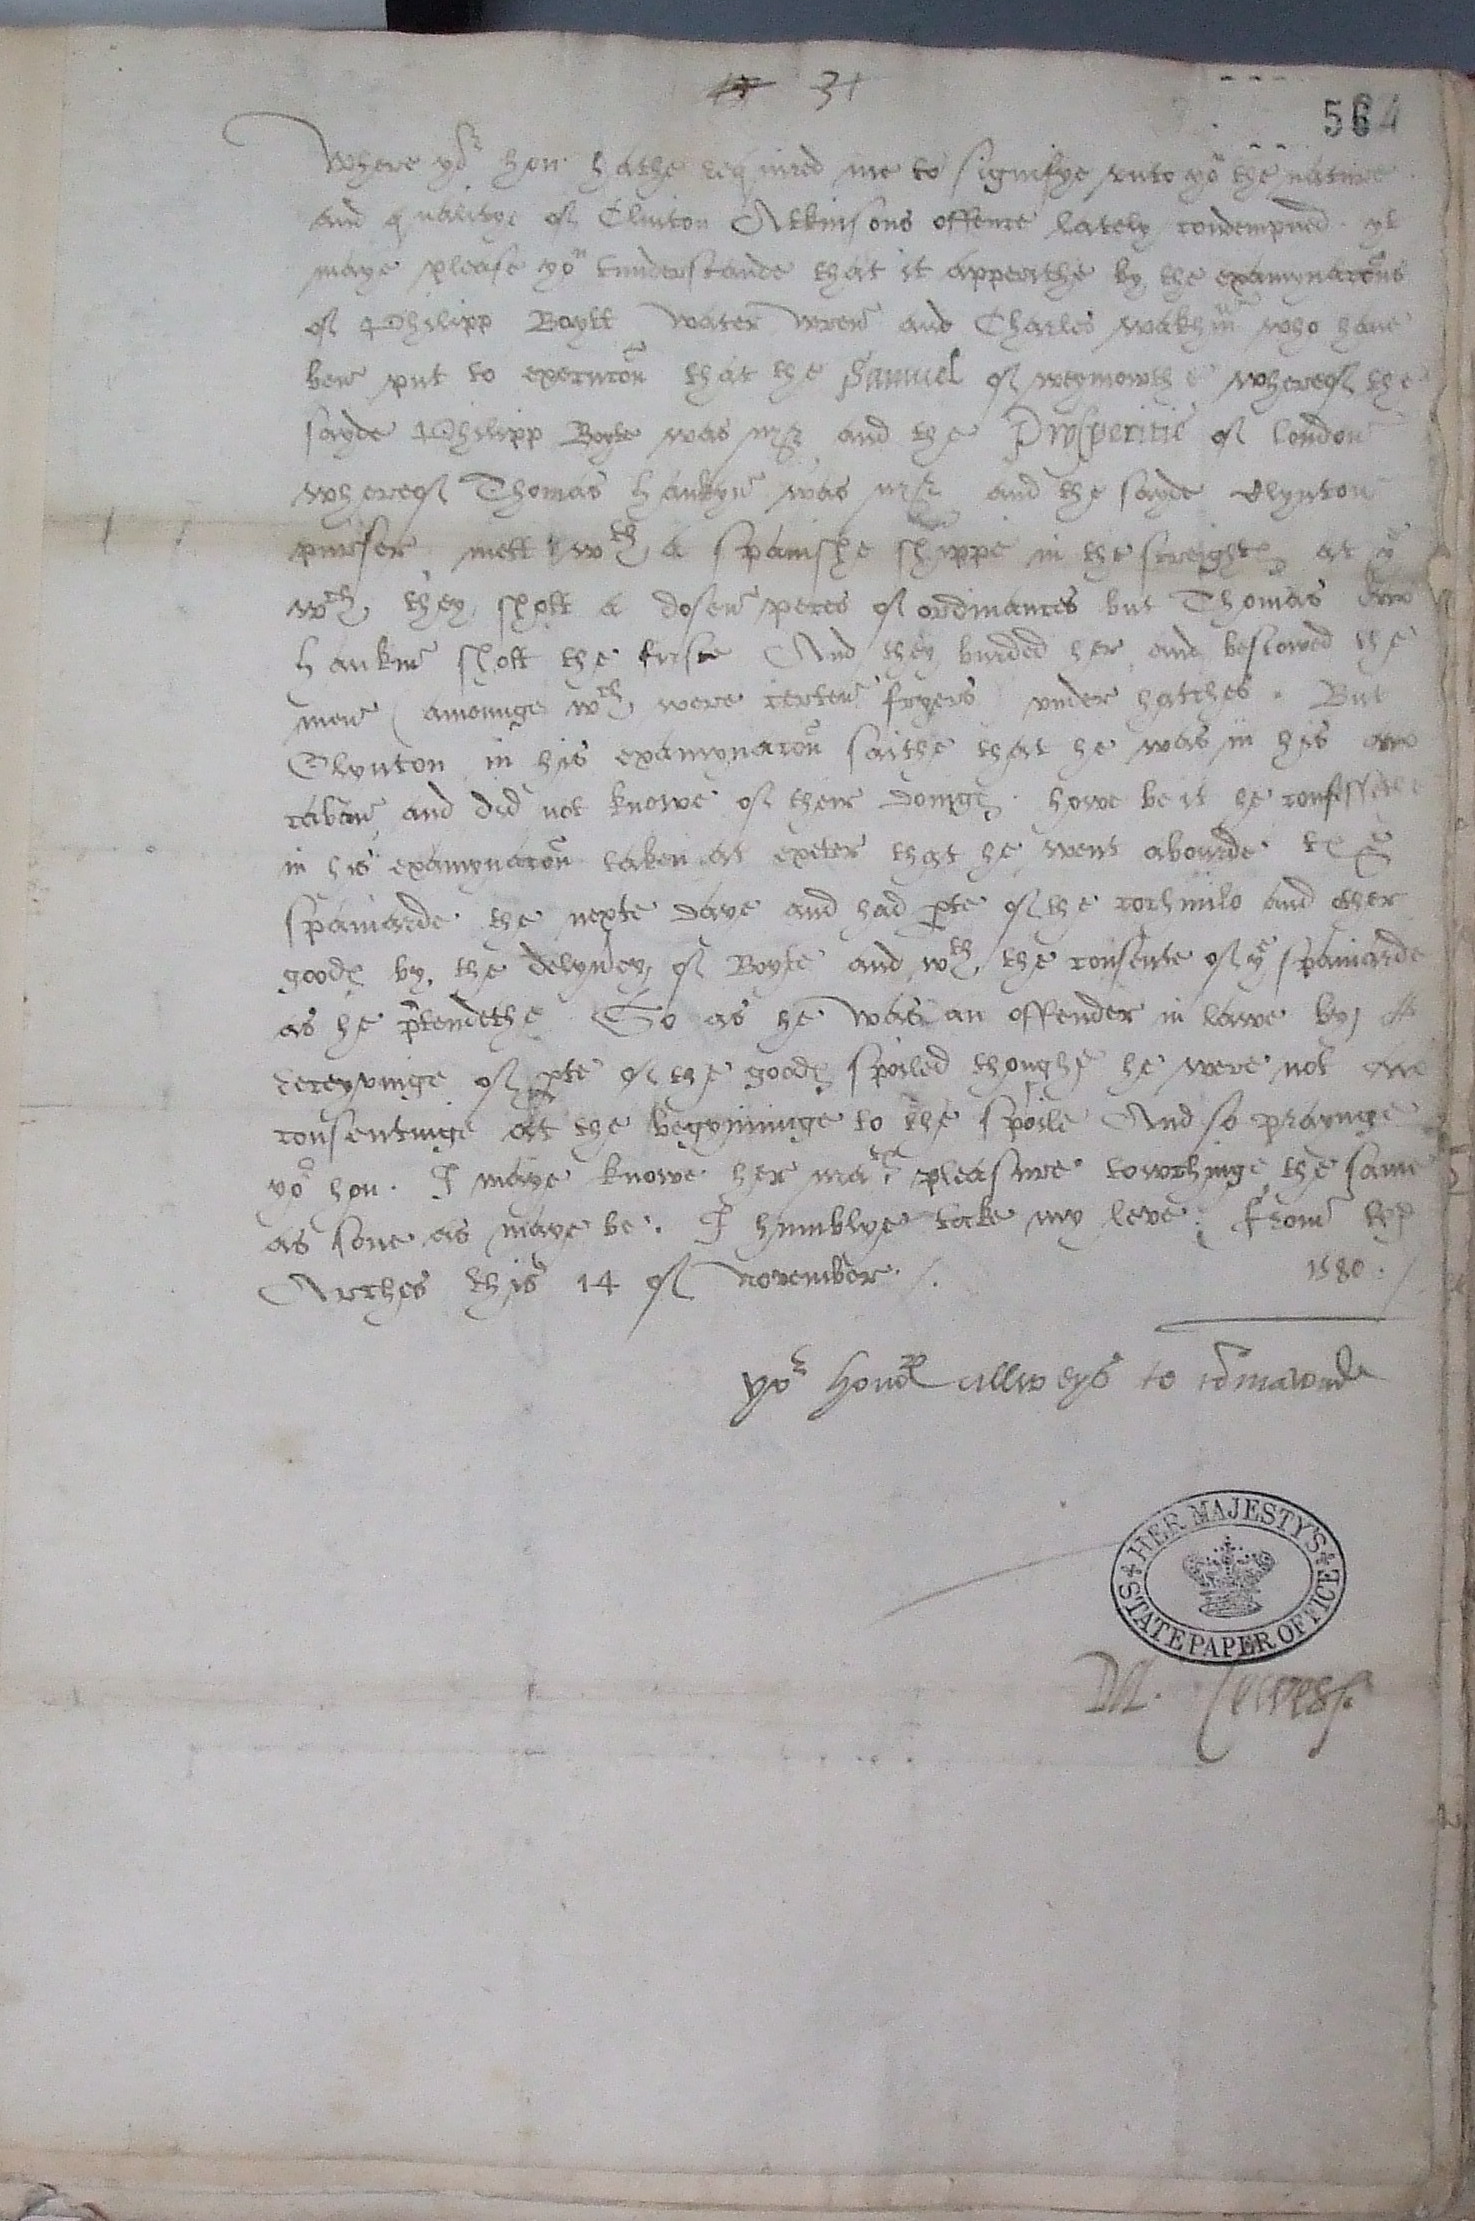 31
564
Where yor hon. hathe required me to signifye unto you the nature
and qualitye of Clinton Atkinsons offence lately condempned. yt
maye please you tunderstande that it appearithe by the examynacons
of Philipp Boytt Water Wren and Charles who have
ben put to execucon that the Samuel of weymowthe whereof the
sayde Philipp Boyte was mr and the Prosperitie of london
whereof Thomas hankyn was mr and the sayde Clynton
purser mett wth a spanishe shippe in the streights at ye
wch they shott a dosen peces of ordinances but Thomas
hankin shott the firste And they burded her and bestowed the
men (amounge wch were certen fryers) under hatches. But
Clynton in his examynacon saithe that he was in his
caban and did not knowe of their doinges. howe be it he confessethe
in his examynacon taken at exeter that he went abourde the
spaniarde the nexte daye and had pte of the cochinilo and other
goods by the delyvery of Boyte and wth the consente of ye spaniarde
as he ptendethe So as he was an offender in lawe by
receyvinge of pte of the goods spoiled thoughe he were not
consentinge att the begynninge to the spoile And so prayinge
yor hon. I maye knowe her mats pleasure towchinge the same
as sone as maye be. I humblye take my leve. From the
Arches this 14 of november. 1580.
yor honors allweys to comawnde
HER MAJESTY'S
STATE PAPER OFFICE